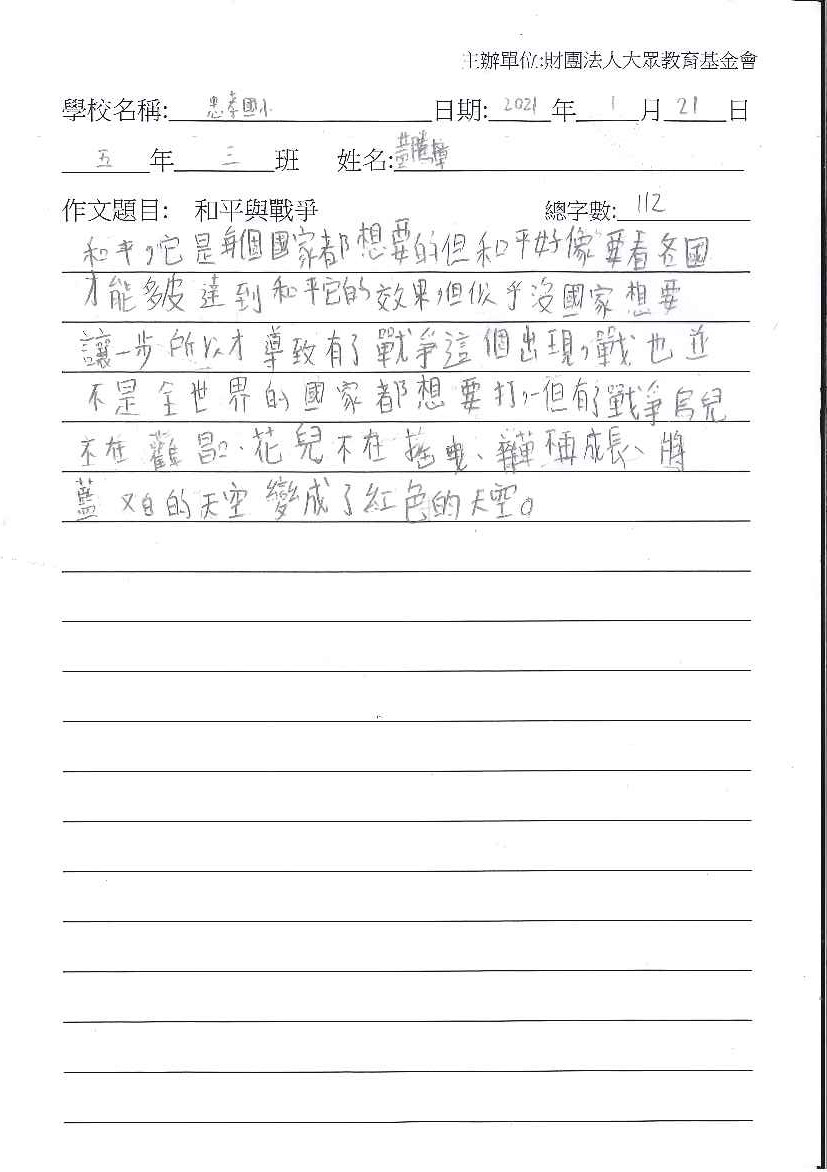 主辦單位:財團法人大眾教育基金會
學校名稱: 忠孝國小 日期: 2021 年 1 月 21 日
五 年 三 班 姓名: 黃
作文題目: 和平與戰爭 總字數: 112
和平,它是每個國家都想要的但和平好像要看各國
才能够達到和平它的效果,但似乎沒國家想要
讓一步所以才導致有了戰爭這個出現,戰也並
不是全世界的國家都想要打,但有了戰爭鳥兒
不在歡唱、花兒不在搖曳、成長、將
藍的天空變成了紅色的天空。